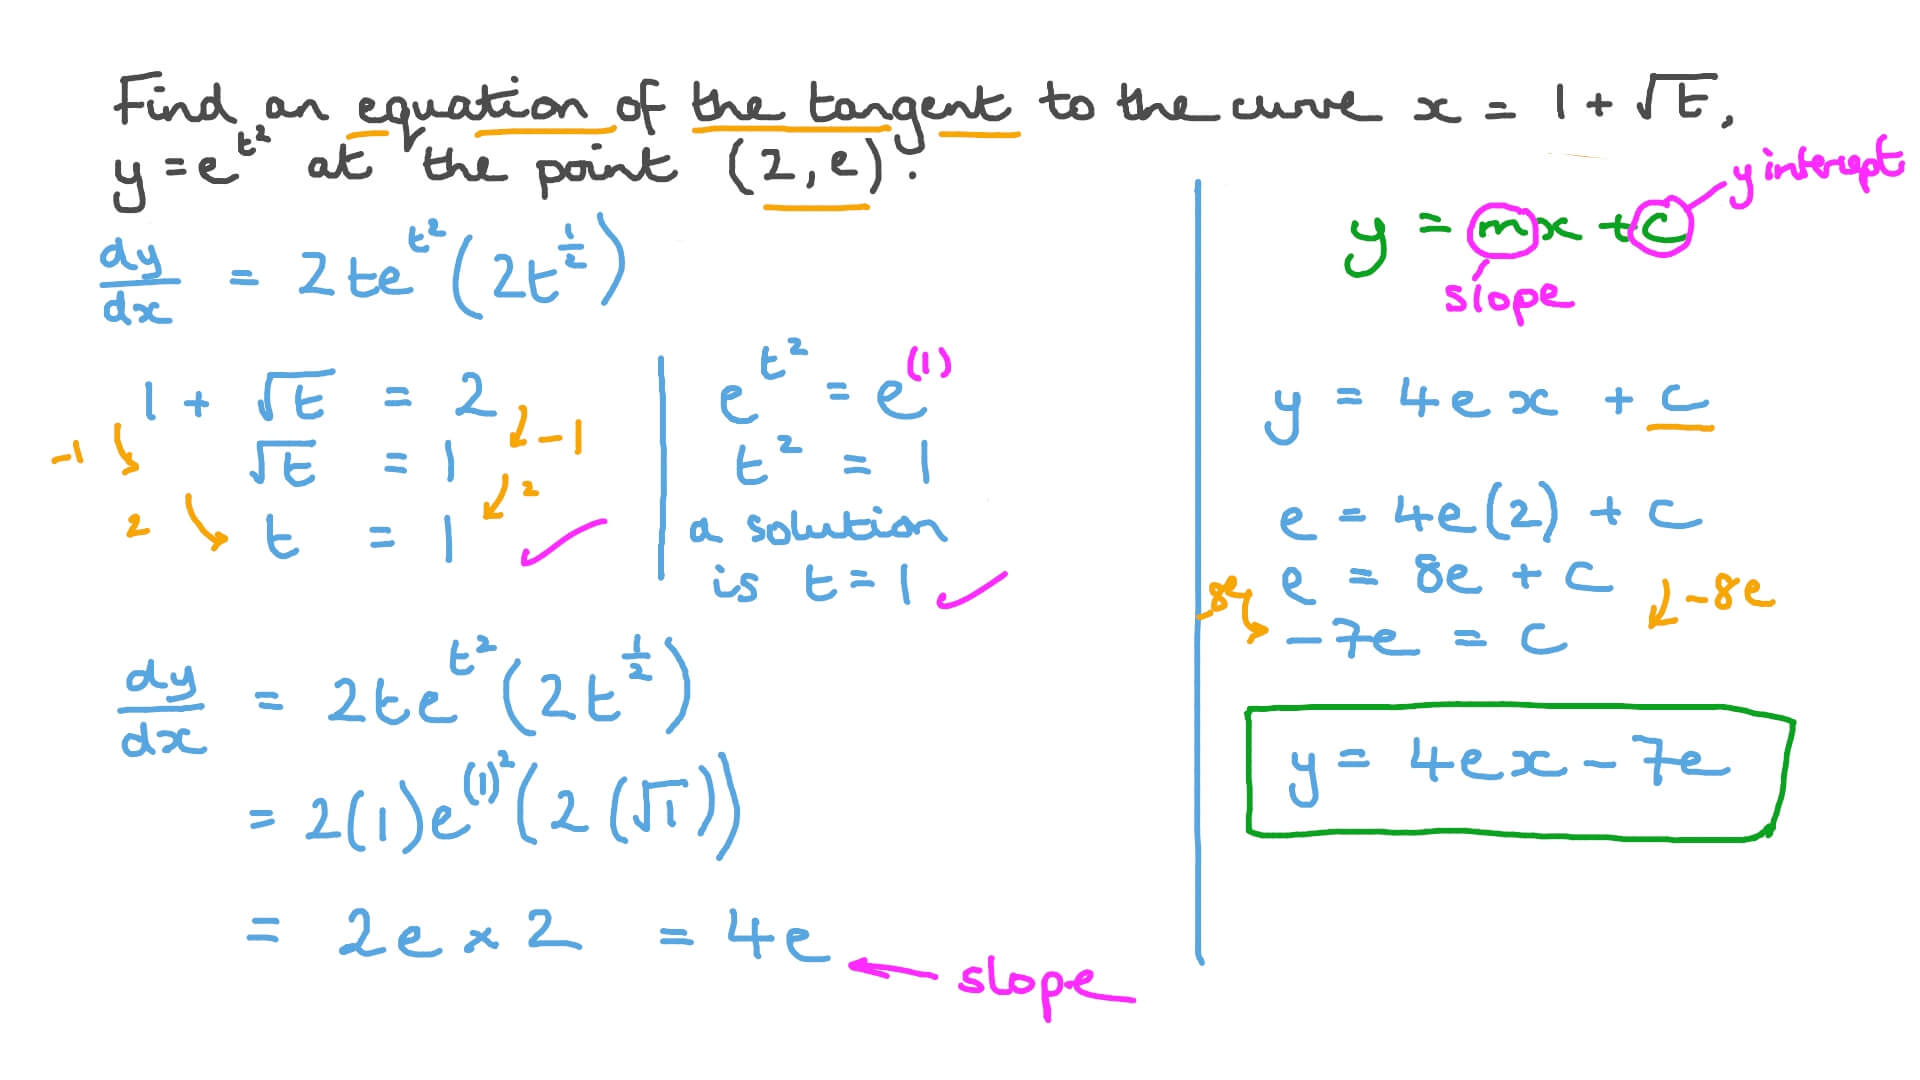 Find an equation of the tangent to the curve x = 1 + √t,
y = e^t² at the point (2, e).
dy/dx = 2te^t² (2t^½)
1 + √t = 2
-1 -1
√t = 1
2 2
t = 1
e^t² = e^(1)
t² = 1
a solution
is t = 1
dy/dx = 2te^t² (2t^½)
= 2(1)e^(1)² (2(√1))
= 2e × 2 = 4e
slope
y = mx + c
y intercept
slope
y = 4ex + c
e = 4e(2) + c
e = 8e + c
-8e -8e
-7e = c
y = 4ex - 7e